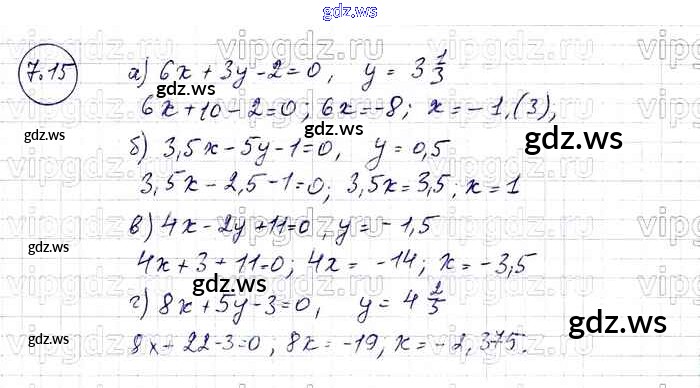 gdz.ws
7.15
а) 6x + 3y - 2 = 0, y = 3 1/3
gdz.ws
6x + 10 - 2 = 0; 6x = -8; x = -1,(3);
gdz.ws gdz.ws gdz.ws
б) 3,5x - 5y - 1 = 0, y = 0,5
3,5x - 2,5 - 1 = 0; 3,5x = 3,5; x = 1
в) 4x - 2y + 11 = 0, y = -1,5
gdz.ws gdz.ws
4x + 3 + 11 = 0; 4x = -14; x = -3,5
gdz.ws
г) 8x + 5y - 3 = 0, y = 4 2/5
gdz.ws gdz.ws
8x + 22 - 3 = 0; 8x = -19, x = -2,375.